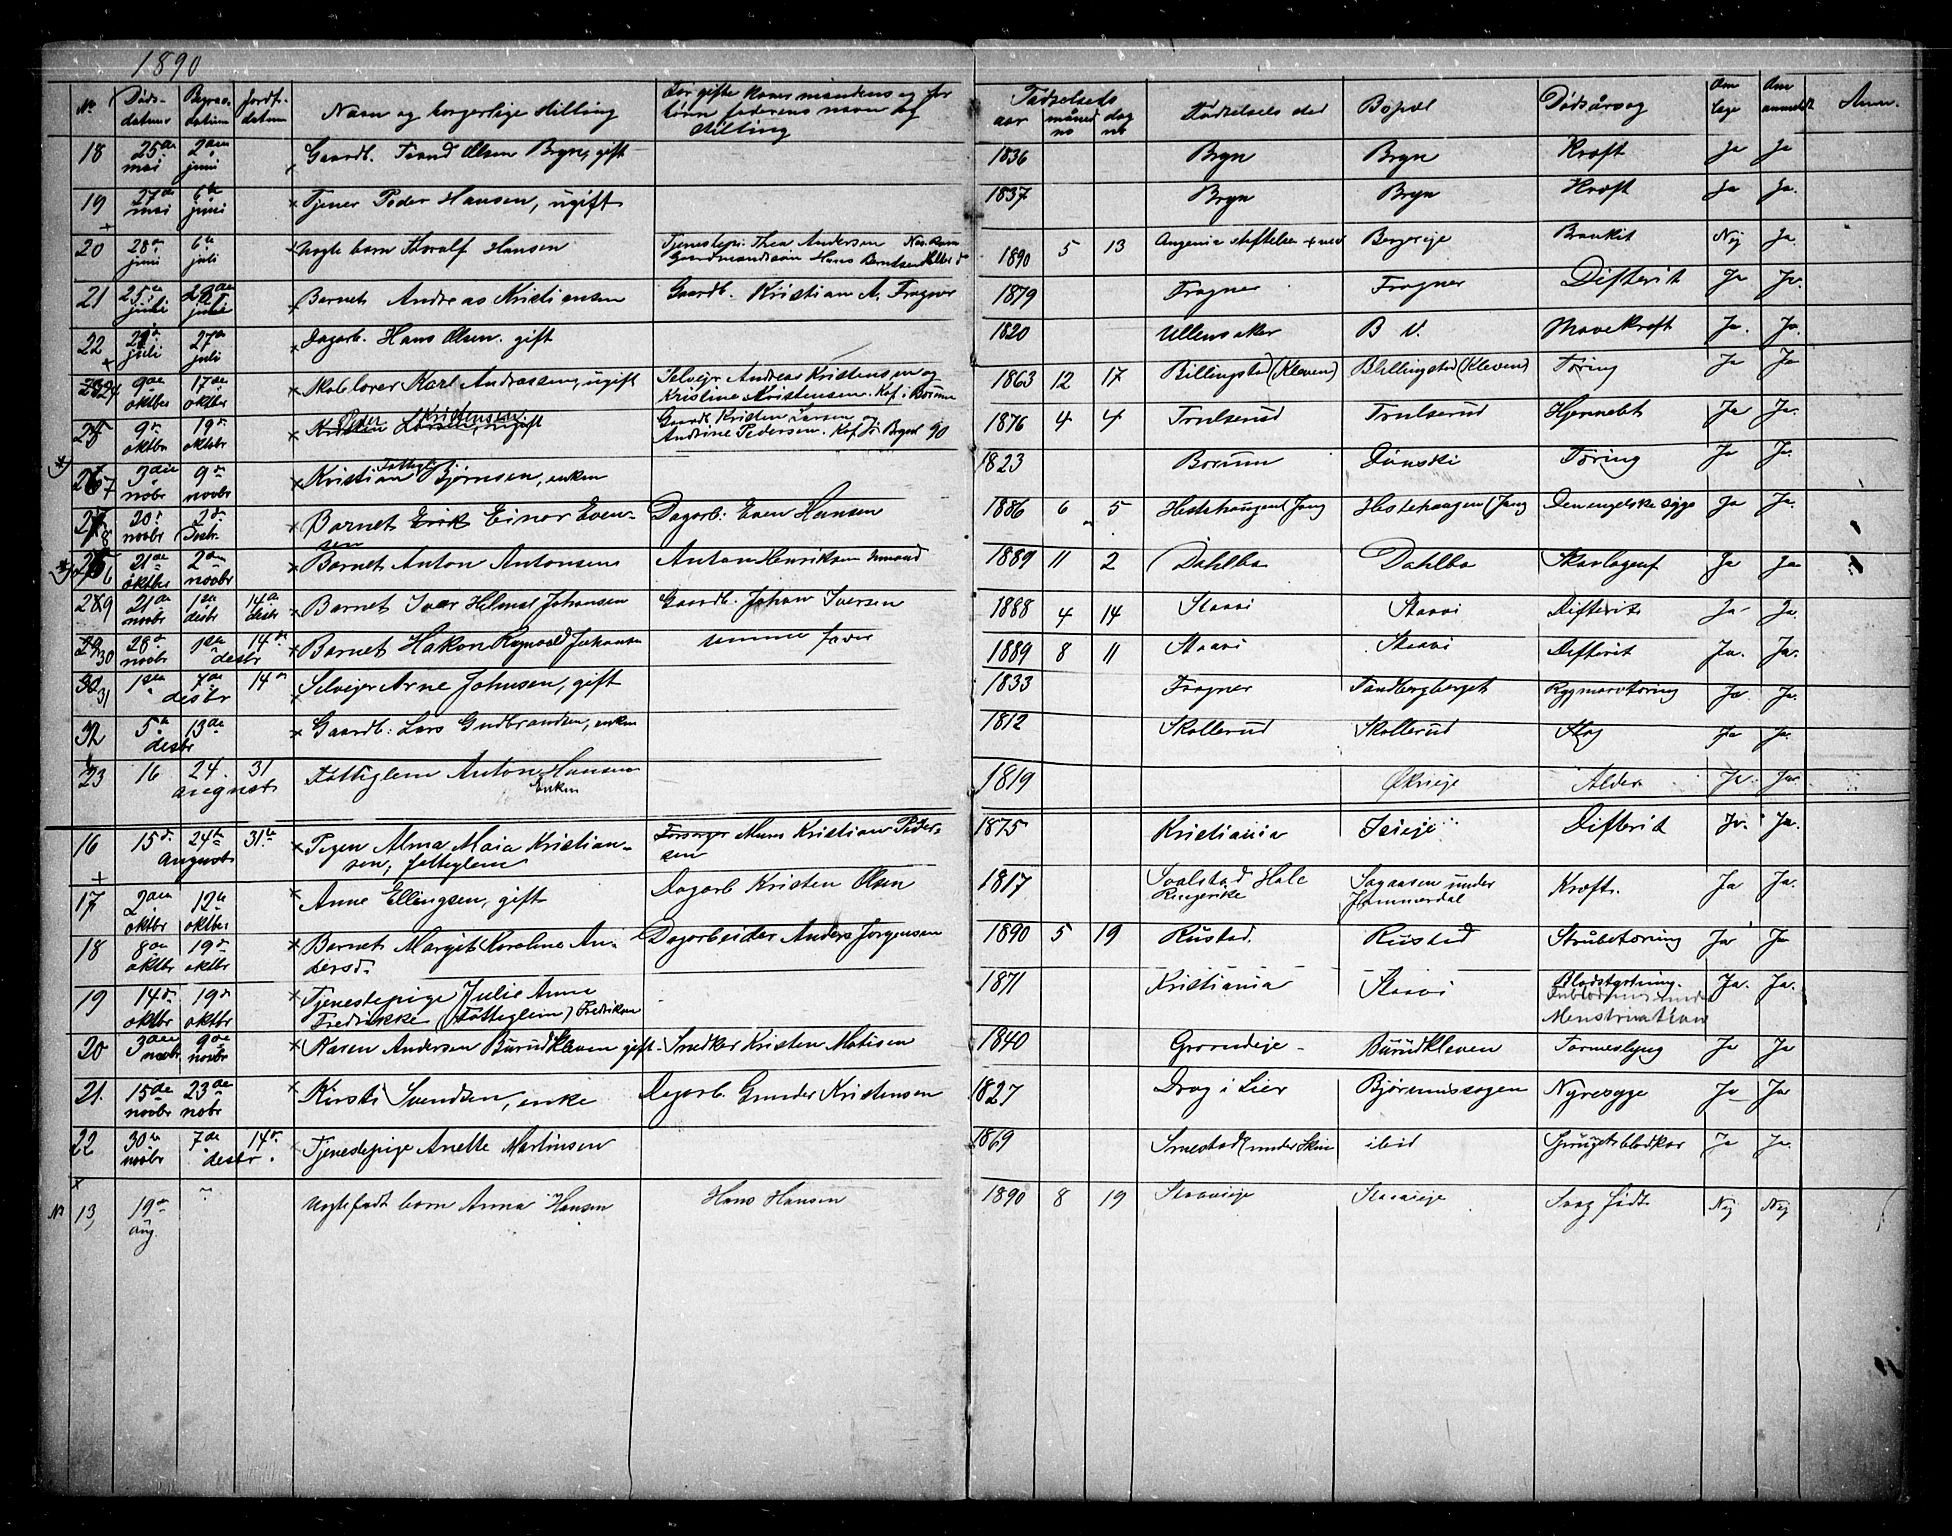 1890
No Døds-datum Begrav.datum Jordf.datum Navn og borgerlige stilling For gifte koner mandens og for børn faderens navn og stilling Fødselsaar måned no dag no Fødselssted Bopæl Dødsårsag Om læge Om anmeldt Anm.
18 25de mai 2den juni Gaardb. Trond Olsen Bryn, gift 1836 Bryn Bryn Kræft Ja Ja
19 27de mai 6te juni Tjener Peder Hansen, ugift 1837 Bryn Bryn Kræft Ja Ja.
20 28de juni 6te juli Uægte barn Thoralf Hansen Tjenestepi. Thea Andersen Gaardmandssøn Hans Berntsen 1890 5 13 stiftelse Bergereje Bronkit Nej Ja.
21 25de juli Barnet Andreas Kristiansen Gaardb. Kristian A. Frogner 1879 Frogner Frogner Difterit Ja Ja.
22 juli 27de juli Dagarb. Hans Olsen. gift 1820 Ullensaker B V. Mavekræft Ja. Ja.
24 9de oktbr 17de oktbr Skolelærer Karl Andreassen, ugift Selvejer Andreas Kristensen og Kristine Kristensen. Kof. i Bærum 1863 12 17 Billingstad (Kleven) Billingstad (Kleven) Tæring Ja Ja
25 9de oktbr 19de oktobr Peder Kristensen, ugift Gaardb. Kristen Larsen og Andrine Pedersen. 1876 4 4 Trulserud Trulserud Hjernebt Ja Ja.
27 3die novbr 9de novbr Kristian Bjørnsen, enkem Fattigl. 1823 Bærum Tæring Ja Ja.
28 20de novbr 2den Desbr. Barnet Erik Einar Evensen Dagarb. Even Hansen 1886 6 5 Hestehaugen (Jong Hestehaugen (Jong Den engelske syge Ja Ja.
26 21de oktbr 2den novbr Barnet Anton Antonsen Anton Henriksen 1889 11 2 Dahlbo Dahlbo Skarlagenf Ja Ja
29 21de novbr 1ste desbr 14de desbr Barnet Ivar Helmer Johansen Gaardb. Johan Iversen 1888 4 14 Staavi Staavi Difterit Ja Ja.
30 28de novbr 1ste desbr 14de Barnet Hakon Ragnvald Johansen samme fader 1889 8 11 Staavi Staavi Difterit Ja. Ja.
31 1ste 7de desbr 14de Selvejer Arne Johnsen, gift 1833 Frogner Tandbergberget Rygmarvtæring Ja. Ja.
32 5te 13de desbr Gaardb. Lars Gudbrandsen, enkem 1812 Skollerud Skollerud Slag Ja Ja.
23 16 24. 31 august Fattiglem Anton Hansen Enkem 1819 Økrieje Alder Ja. Ja.
16 15de 24de 31te August Pigen Alma Maia Kristiansen, fattiglem Murer Kristian Pedersen 1875 Kristiania Difterit Ja. Ja.
17 2den oktbr 12te oktbr Anne Ellingsen, gift Dagarb Kristen Olsen 1817 Hole Ringerike Sagaasen under Jammerdal Kræft. Ja Ja.
18 8de oktbr 19de oktbr Barnet Margit Karoline Andersd. Dagarbeider Anders Jørgensen 1890 5 19 Rustad. Rustad Strubetæring Ja Ja
19 14de oktbr 19de oktbr Tjenestepige Julie Anna Fredrikke (Fattiglem) Fredriksen 1871 Kristiania Staavi Blodstyrtning. Menstruation Ja. Ja.
20 3die novbr 9de novbr Karen Andersen Burudkleven gift. Snedker Kristen Matisen 1840 Groundeje Burudkleven Tarmeslyng Ja Ja
21. 15de novbr 23de nobr Kirsti Svendsen, enke Dagarb. Gunder Kristensen 1827 Drog i Lier Bjørumssagen Nyresyge Ja Ja
22 30te novbr 7de desbr 14de. Tjenestepige Anette Martinsen 1869 Smestad (under Skui ibid Sprunget blodkar Ja Ja.
No 13, 19de aug. Uægtefødt barn Anna Hansen Hans Hansen 1890 8 19 Staavieje Staavieje Svag født. Nej Nej